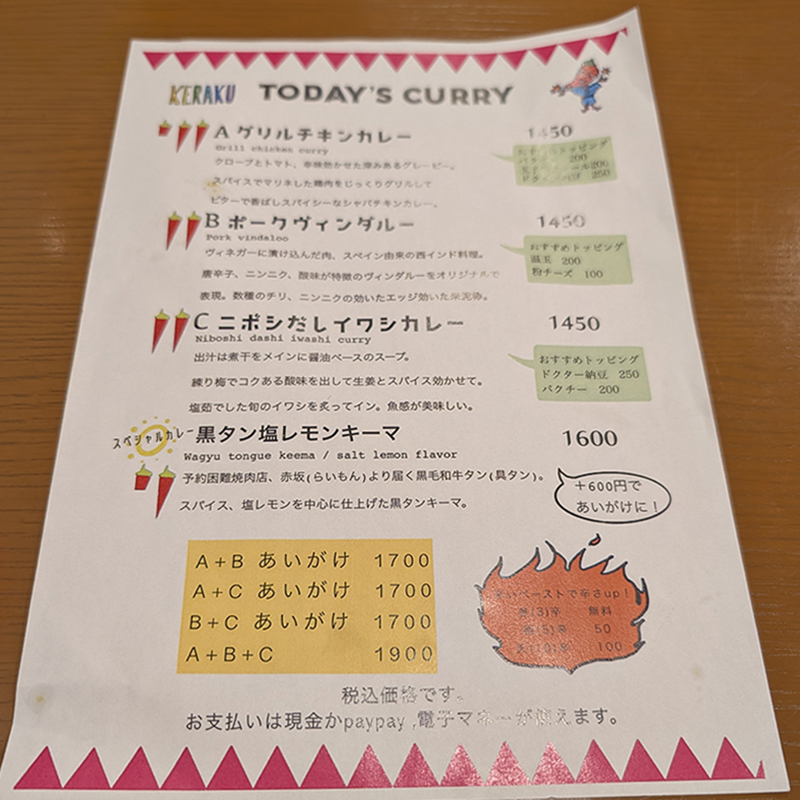 KERAKU TODAY'S CURRY
A グリルチキンカレー 1450
Grill chicken curry
クローブとトマト、辛味効かせた深みあるグレービー。
スパイスでマリネした鶏肉をじっくりグリルして
ビターで香ばしスパイシーなシャバチキンカレー。
おすすめトッピング
パクチー 200
200
250
B ポークヴィンダルー 1450
Pork vindaloo
ヴィネガーに漬け込んだ肉、スペイン由来の西インド料理。
唐辛子、ニンニク、酸味が特徴のヴィンダルーをオリジナルで
表現。数種のチリ、ニンニクの効いたエッジ効いた
おすすめトッピング
温玉 200
粉チーズ 100
C ニボシだしイワシカレー 1450
Niboshi dashi iwashi curry
出汁は煮干をメインに醤油ベースのスープ。
練り梅でコクある酸味を出して生姜とスパイス効かせて。
塩茹でした旬のイワシを炙ってイン。魚感が美味しい。
おすすめトッピング
ドクター納豆 250
パクチー 200
スペシャルカレー 黒タン塩レモンキーマ 1600
Wagyu tongue keema / salt lemon flavor
予約困難焼肉店、赤坂(らいもん)より届く黒毛和牛タン(具タン)。
スパイス、塩レモンを中心に仕上げた黒タンキーマ。
+600円で
あいがけに!
A+B あいがけ 1700
A+C あいがけ 1700
B+C あいがけ 1700
A+B+C 1900
ペーストで辛さup!
(3)辛 無料
(5)辛 50
(10)辛 100
税込価格です。
お支払いは現金かpaypay ,電子マネーが使えます。